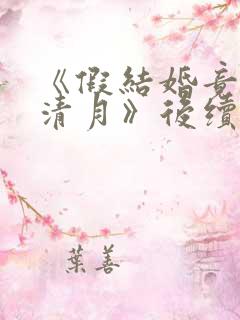 《假結婚竟
清月》後續
葉善